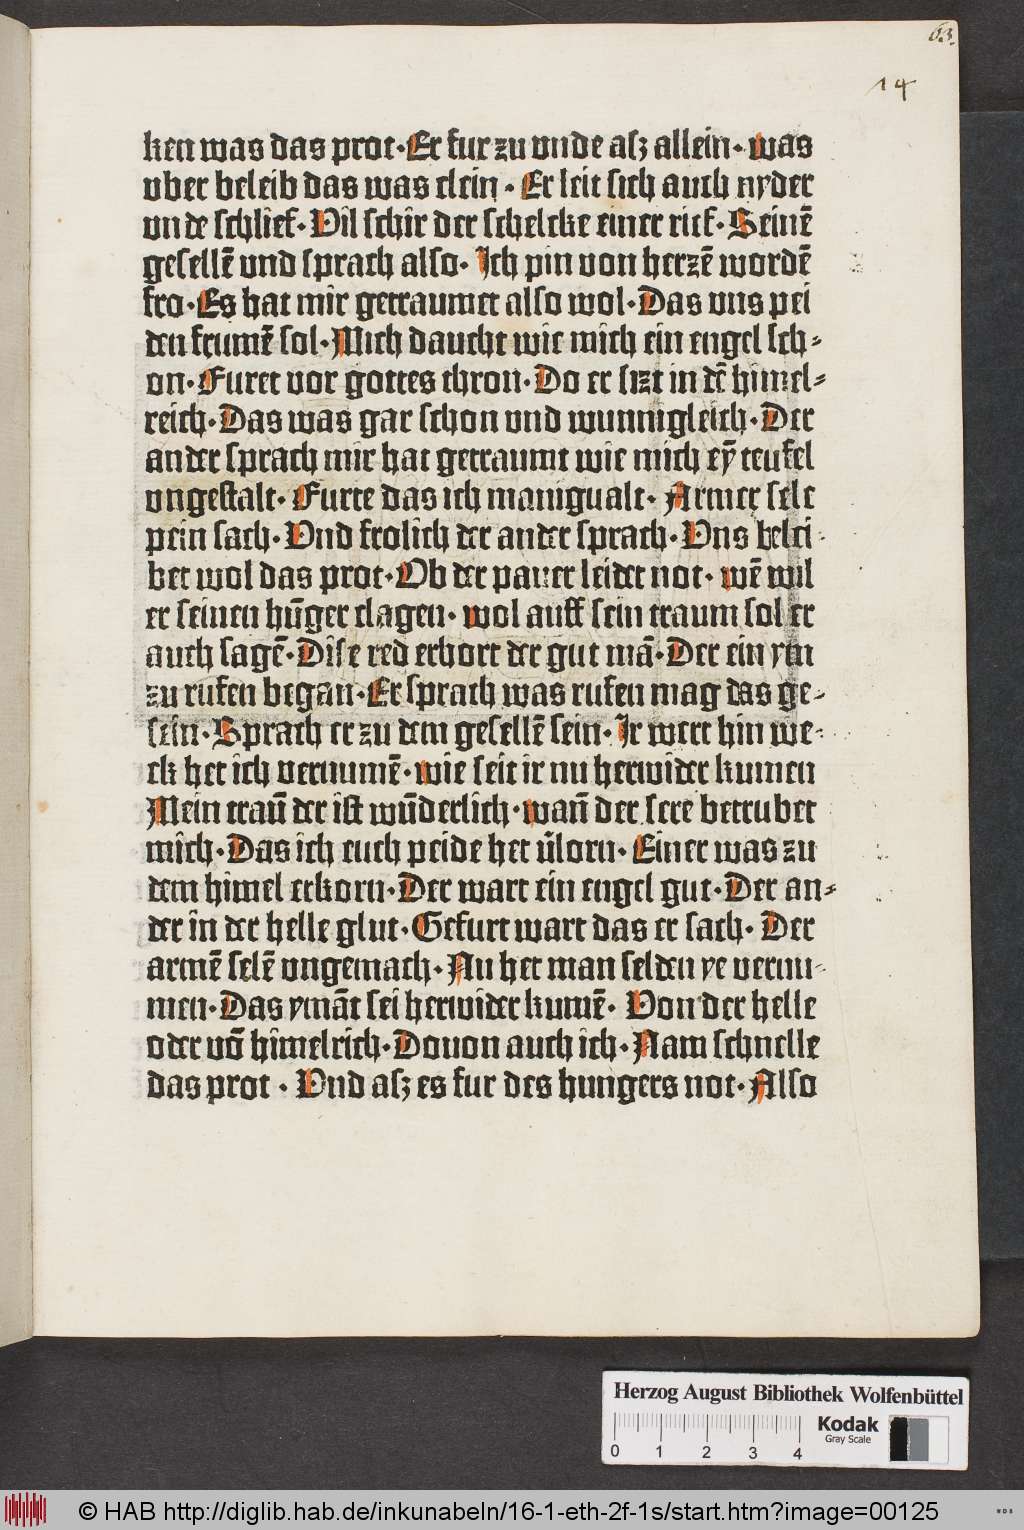 63.
14
ken was das prot·Er fur zu vnde aſz allein·was
vber beleib das was clein·Er leit ſich auch nyder
vnde ſchlief·Vil ſchir der ſchelcke einer rief·Seinē
geſellē vnd ſprach alſo·Ich pin von herzē wordē
fro·Es hat mir getraumet alſo wol·Das vns pei
den frumē ſol·Mich daucht wie mich ein engel ſch⸗
on·Furet vor gottes thron·Do er ſizt in dē himel⸗
reich·Das was gar ſchon vnd wunnigleich·Der
ander ſprach mir hat getraumt wie mich eȳ teufel
vngeſtalt·Furte das ich manigualt·Armer ſele
pein ſach·Vnd frolich der ander ſprach·Vns belei⸗
bet wol das prot·Ob der pauer leidet not·wē wil
er ſeinen hūger clagen·wol auff ſein traum ſol er
auch ſagē·Diſe red erhort der gut mā·Der ein ym
zu rufen began·Er ſprach was rufen mag das ge⸗
ſein·Sprach er zu dem geſellē ſein·Ir wert hin we⸗
ck het ich vernumē·wie ſeit ir nu herwider kumen
Mein traū der iſt wūderlich·wañ der ſere betrubet
mich·Das ich euch peide het v̄lorn·Einer was zu
dem himel erkorn·Der wart ein engel gut·Der an⸗
der in der helle glut·Gefurt wart das er ſach·Der
armē ſelē vngemach·Nu het man ſelden ye vernu⸗
men·Das ymāt ſei herwider kumē·Von der helle
oder vō himelrich·Dovon auch ich·Nam ſchnelle
das prot·Vnd aſz es fur des hungers not·Alſo
Herzog August Bibliothek Wolfenbüttel
0 1 2 3 4
Kodak
Gray Scale
© HAB http://diglib.hab.de/inkunabeln/16-1-eth-2f-1s/start.htm?image=00125